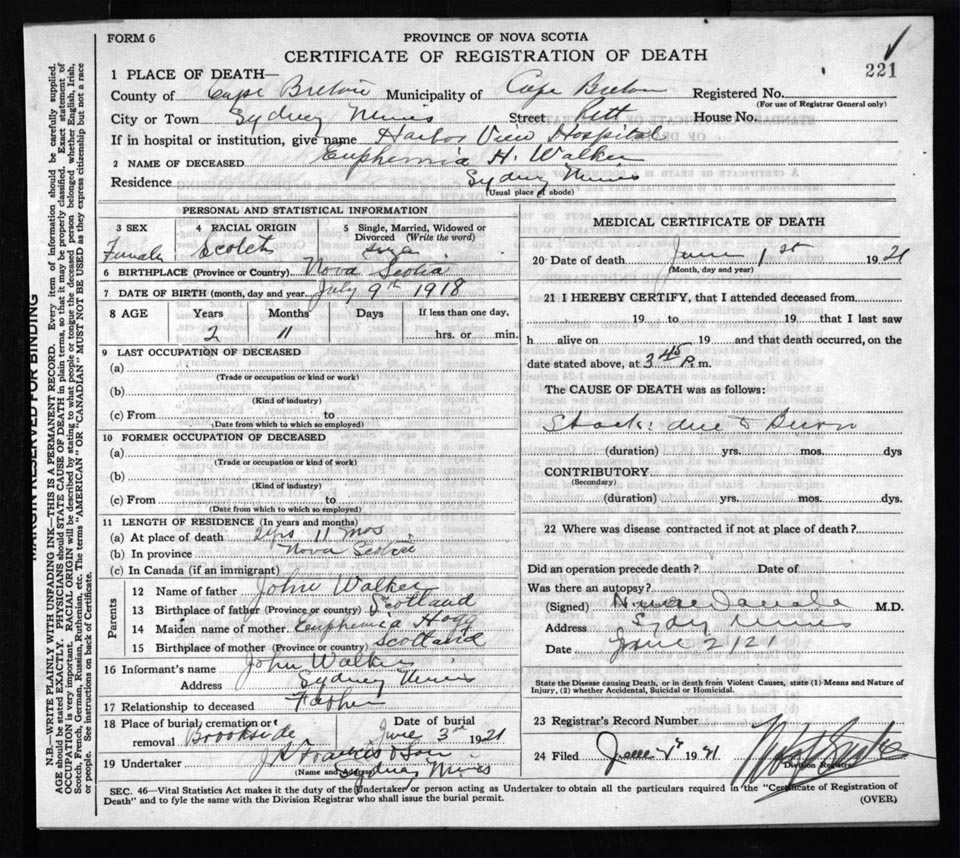 FORM 6
PROVINCE OF NOVA SCOTIA
CERTIFICATE OF REGISTRATION OF DEATH
221
1 PLACE OF DEATH—
County of Cape Breton Municipality of Cape Breton Registered No.
(For use of Registrar General only)
City or Town Sydney Mines Street Pitt House No.
If in hospital or institution, give name Harbor View Hospital
2 NAME OF DECEASED Euphemia H. Walker
Residence Sydney Mines
(Usual place of abode)
PERSONAL AND STATISTICAL INFORMATION
3 SEX 4 RACIAL ORIGIN 5 Single, Married, Widowed or Divorced (Write the word)
Female Scotch
6 BIRTHPLACE (Province or Country) Nova Scotia
7 DATE OF BIRTH (month, day and year) July 9th 1918
8 AGE Years Months Days If less than one day,
2 11 hrs. or min.
9 LAST OCCUPATION OF DECEASED
(a)
(Trade or occupation or kind or work)
(b)
(Kind of industry)
(c) From to
(Date from which to which so employed)
10 FORMER OCCUPATION OF DECEASED
(a)
(Trade or occupation or kind of work)
(b)
(Kind of industry)
(c) From to
(Date from which to which so employed)
11 LENGTH OF RESIDENCE (In years and months)
(a) At place of death 2 yrs 11 mos
(b) In province Nova Scotia
(c) In Canada (if an immigrant)
Parents
12 Name of father John Walker
13 Birthplace of father (Province or country) Scotland
14 Maiden name of mother Euphemia Hogg
15 Birthplace of mother (Province or country) Scotland
16 Informant's name John Walker
Address Sydney Mines
17 Relationship to deceased Father
18 Place of burial, cremation or removal Brookside Date of burial June 3rd 1921
19 Undertaker J A Francis & Son
(Name and Address) Sydney Mines
MEDICAL CERTIFICATE OF DEATH
20 Date of death June 1st 1921
(Month, day and year)
21 I HEREBY CERTIFY, that I attended deceased from
19 to 19 that I last saw
h alive on 19 and that death occurred, on the
date stated above, at 3 45 P. m.
The CAUSE OF DEATH was as follows:
Shock: due to Burn
(duration) yrs. mos. dys
CONTRIBUTORY
(Secondary)
(duration) yrs. mos. dys.
22 Where was disease contracted if not at place of death?
Did an operation precede death? Date of
Was there an autopsy?
(Signed) M.D.
Address Sydney Mines
Date June 2/21
State the Disease causing Death, or in death from Violent Causes, state (1) Means and Nature of
Injury, (2) whether Accidental, Suicidal or Homicidal.
23 Registrar's Record Number
24 Filed June 1921
Division Registrar
SEC. 46—Vital Statistics Act makes it the duty of the Undertaker or person acting as Undertaker to obtain all the particulars required in the "Certificate of Registration of
Death" and to fyle the same with the Division Registrar who shall issue the burial permit.
(OVER)
MARGIN RESERVED FOR BINDING
N.B.—WRITE PLAINLY WITH UNFADING INK—THIS IS A PERMANENT RECORD. Every item of information should be carefully supplied.
AGE should be stated EXACTLY. PHYSICIANS should STATE CAUSE OF DEATH in plain terms, so that it may be properly classified. Exact statement of
OCCUPATION is very important. RACIAL ORIGIN will be described by stating to what people or tongue the deceased person belonged whether English, Irish,
Scotch, French, German, Russian, Ruthenian, etc. The terms "AMERICAN" OR "CANADIAN" MUST NOT BE USED as they express citizenship but not a race
or people. See instructions on back of Certificate.